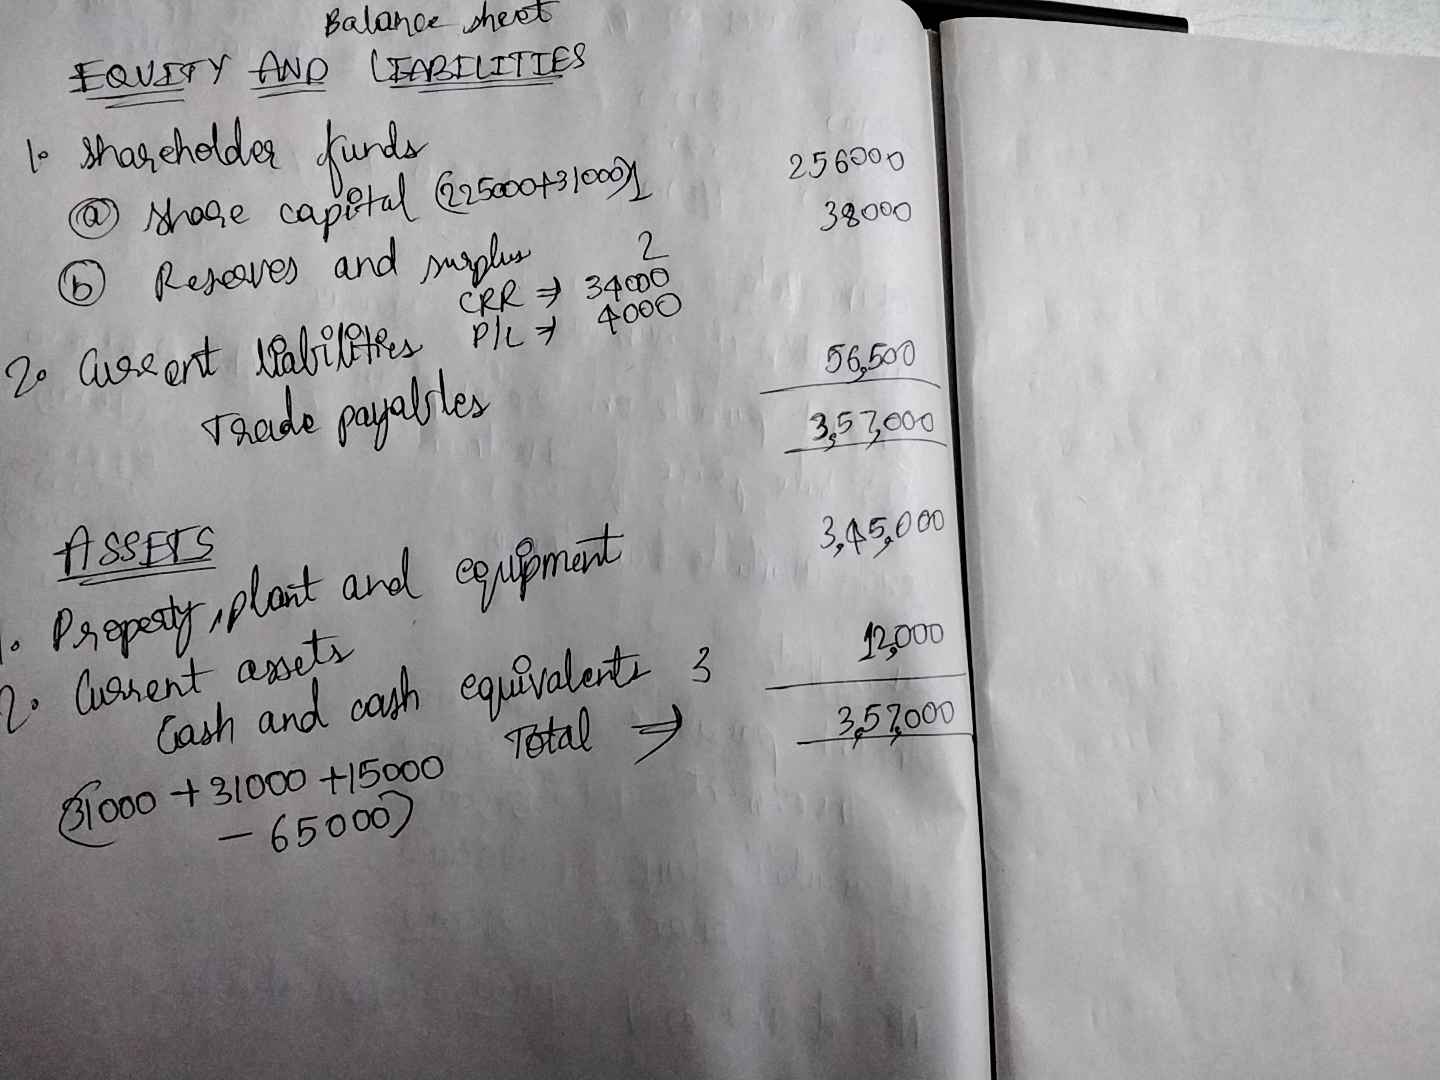 Balance sheet
EQUITY AND LIABILITIES
1. Shareholder funds
(a) share capital (225000+31000) 1 256000
(b) Reserves and surplus 2 38000
CRR ⇒ 34000
P/L ⇒ 4000
2. Current liabilities
Trade payables 56,500
3,57,000
ASSETS
1. Property, plant and equipment 3,45,000
2. Current assets
Cash and cash equivalents 3 12,000
Total ⇒ 3,57,000
(31000 + 31000 + 15000
- 65000)